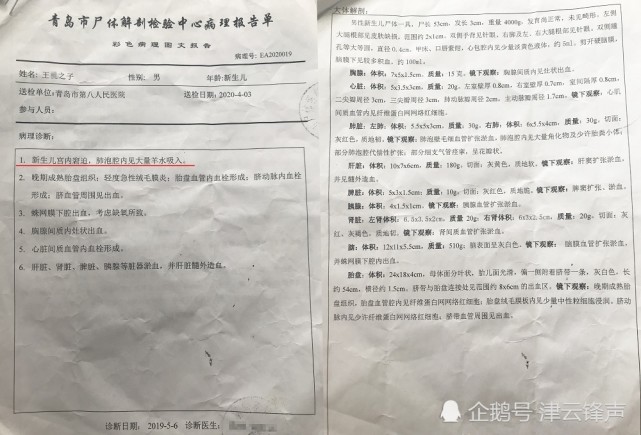 青岛市尸体解剖检验中心病理报告单
彩色病理图文报告
病理号: EA2020019
姓名: 王 之子 性别: 男 年龄: 新生儿
送检单位: 青岛市第八人民医院 送检日期: 2020-4-03
参与人员:
病理诊断:
1. 新生儿宫内窘迫, 肺泡腔内见大量羊水吸入。
2. 晚期成熟胎盘组织: 轻度急性绒毛膜炎; 胎盘血管内血栓形成; 脐动脉内血栓
形成; 脐血管周围见出血。
3. 蛛网膜下腔出血, 考虑缺氧所致。
4. 胸腺间质内灶状出血。
5. 心脏间质血管内血栓形成。
6. 肝脏、肾脏、脾脏、胰腺等脏器淤血, 并肝脏髓外造血。
诊断日期: 2019-5-6 诊断医生:
大体解剖:
男性新生儿尸体一具, 尸长 53cm, 发长 3cm, 重量 4000g, 发育尚正常, 未见畸形, 左侧
大腿根部见皮肤缺损, 范围约 2x1cm, 双侧手背见针眼, 右脚及左、右大腿根部见针眼, 双侧瞳
孔等大等圆, 直径 0.4cm, 甲床、口唇青紫, 心包腔内见少量淡黄色液体, 约 5ml, 剪开硬脑膜,
脑膜下见较多积血, 约 100ml。
胸腺: 体积: 7x5x1.5cm, 质量: 15 克, 镜下观察: 胸腺间质内见灶状出血。
心脏: 体积: 5x3.5x3cm, 质量: 20g, 左室壁厚 0.8cm, 右室壁厚 0.7cm, 室间隔厚 0.8cm,
二尖瓣周径 3cm, 三尖瓣周径 3cm, 肺动脉瓣周径 2cm, 主动脉瓣周径 1.7cm, 镜下观察: 心肌
间质血管内见血栓形成, 血管扩张淤血。
切面:
肝脏: 体积: 10x7x6cm, 质量: 180g, 切面: 灰黄色, 质地软, 镜下观察: 肝窦扩张淤血,
并见髓外造血。
脾脏: 体积: 5x3x1.5cm, 质量: 10g, 切面: 灰红色, 质地脆, 镜下观察: 脾窦扩张、淤血。
胰腺: 体积: 4x1.5x1cm, 镜下观察: 胰腺血管扩张淤血。
灰红、灰褐色, 质地韧, 镜下观察: 肾间质血管扩张淤血。
脑: 体积: 12x11x5.5cm, 质量: 510g, 脑表面呈灰白色, 镜下观察: 脑膜血管扩张淤血,
并蛛网膜下腔内出血。
胎盘: 体积: 24x18x4cm, 母体面分叶状, 胎儿面光滑, 偏一侧附着脐带一条, 灰白色, 长
约 54cm, 横径约 1.5cm, 脐带与胎盘连接处见范围约 8x6cm 的出血区, 镜下观察: 晚期成熟胎
盘组织, 胎盘血管腔内见纤维蛋白网网络红细胞; 胎盘绒毛膜板内见少量中性粒细胞浸润, 脐动
脉内见少许纤维蛋白网网络红细胞; 脐带血管周围见出血。
企鹅号 津云锋声